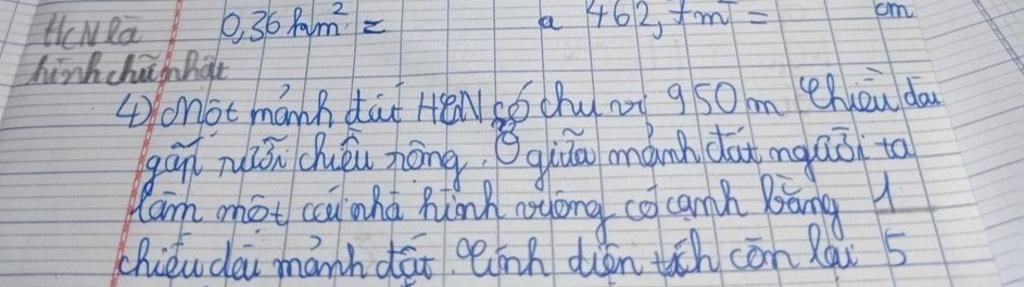 HCN là 0,36 hm² = a 462,7m = cm
hình chữ nhật
4) Một mảnh đất HCN có chu vi 950m Chiều dài
gấp rưỡi chiều rộng. Ở giữa mảnh đất người ta
làm một cái nhà hình vuông có cạnh bằng 1
chiều dài mảnh đất. Tính diện tích còn lại 5